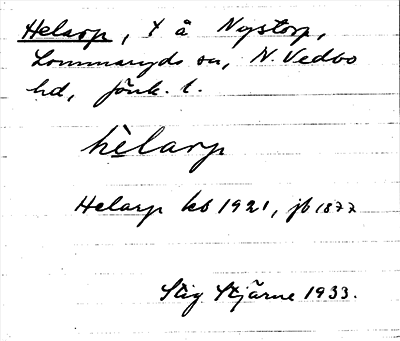 Helarp, t å Nystorp,
Lommaryds sn, N. Vedbo
hd, Jönk. l.
hèlarp
Helarp kb 1921, jb 1877
Stig Stjärne 1933.